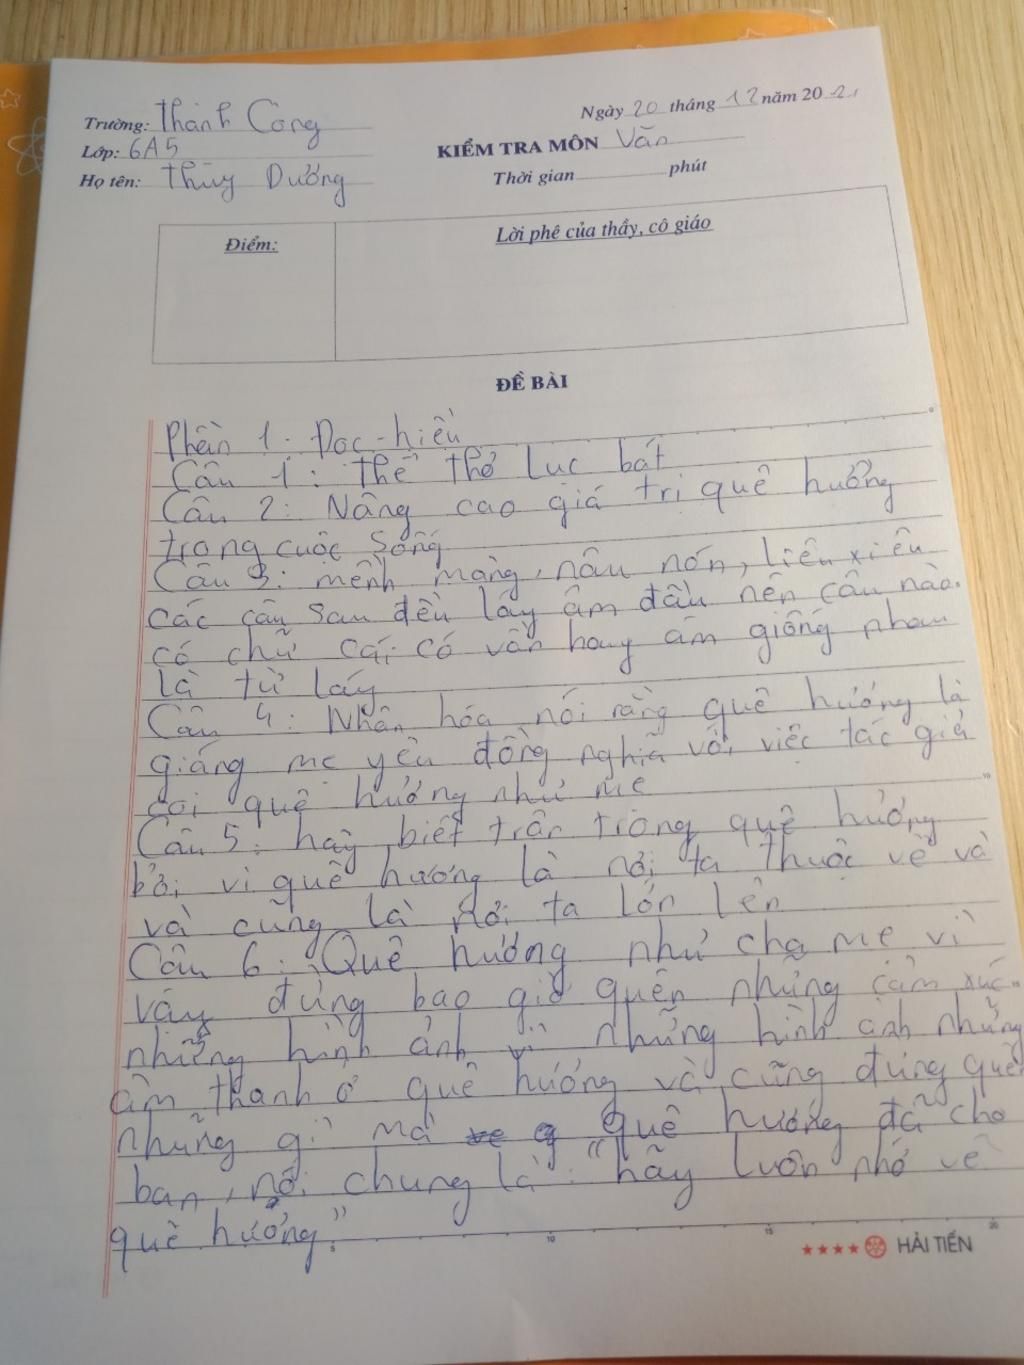 Trường: Thành Công
Ngày 20 tháng 12 năm 2021
Lớp: 6A5
KIỂM TRA MÔN Văn
Họ tên: Thùy Dương
Thời gian phút
Điểm:
Lời phê của thầy, cô giáo
ĐỀ BÀI
Phần 1: Đọc-hiểu
Câu 1: Thể thơ lục bát
Câu 2: Nâng cao giá trị quê hương
trong cuộc sống
Câu 3: mênh mang, nâu nón, liêu xiêu
các câu sau đều láy âm đầu nên câu nào
có chữ cái có vần hay âm giống nhau
là từ láy
Câu 4: Nhân hóa, nói rằng quê hương là
giáng mẹ yêu đồng nghĩa với việc tác giả
coi quê hương như mẹ
Câu 5: hãy biết trân trọng quê hương
bởi vì quê hương là nơi ta thuộc về và
và cũng là nơi ta lớn lên
Câu 6: Quê hương như cha mẹ vì
vậy đừng bao giờ quên những cảm xúc
những hình ảnh vì những hình ảnh những
âm thanh ở quê hương và cũng đừng quên
những gì mà quê hương đã cho
bạn, nói chung là: "hãy luôn nhớ về
quê hương"
5 10 15 20
HẢI TIẾN